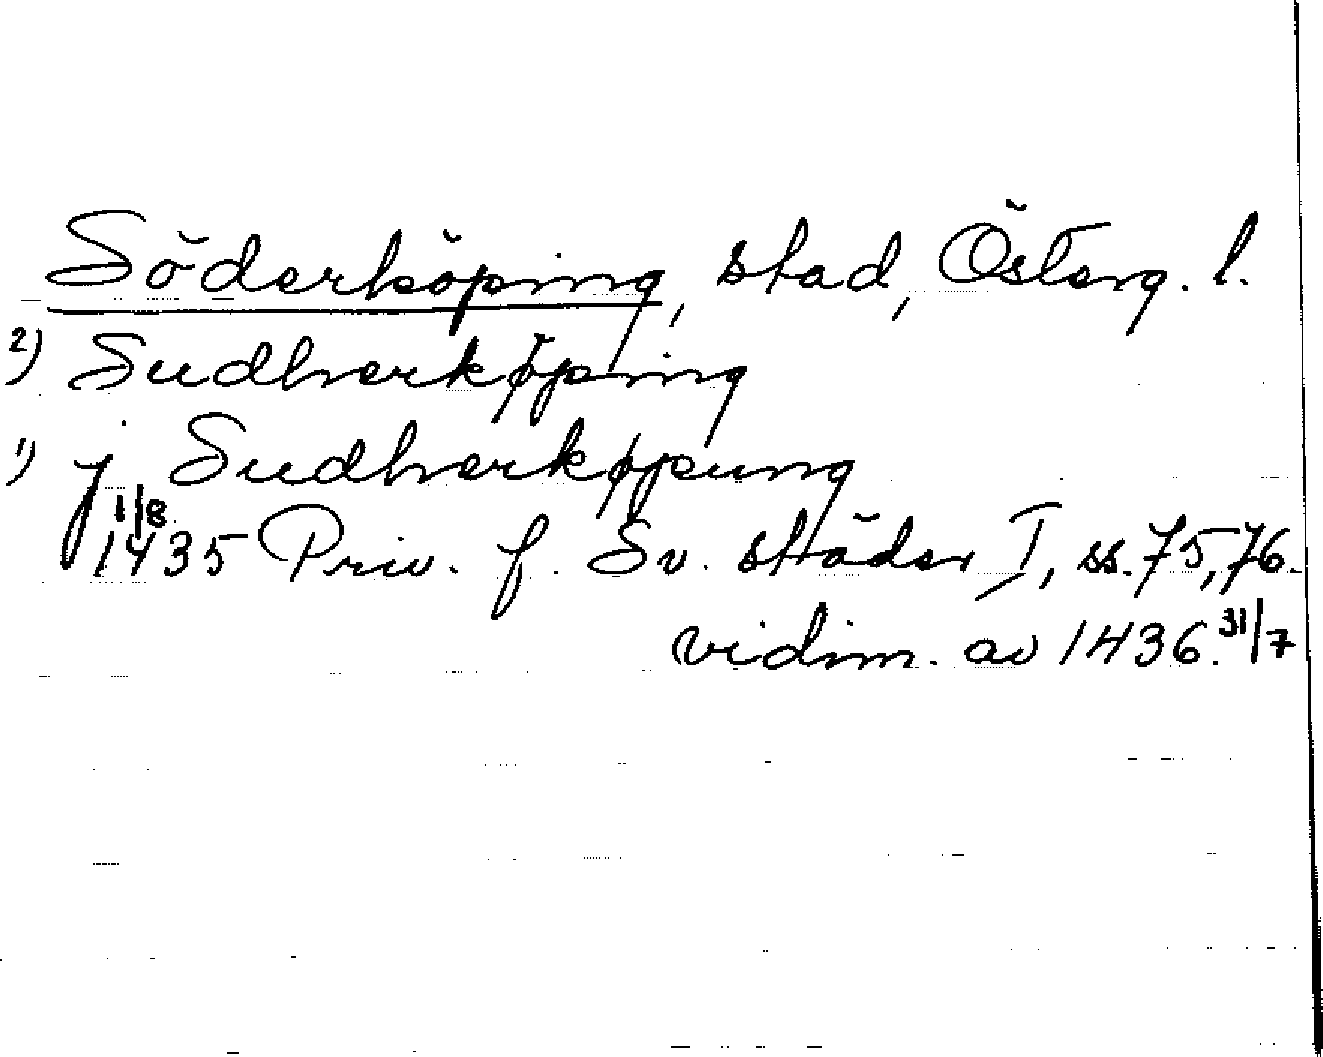 Söderköping, stad, Österg. l.
2) Sudherkøping
1) j Sudherkøpung
1/8 1435 Priv. f. Sv. städer I, ss. 75, 76.
vidim. av 1436. 31/7